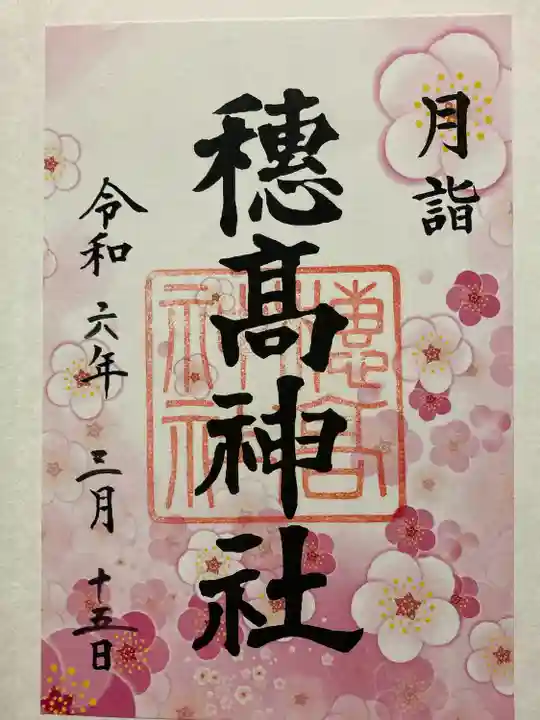 月詣
穂髙神社
令和六年三月十五日
穂高神社